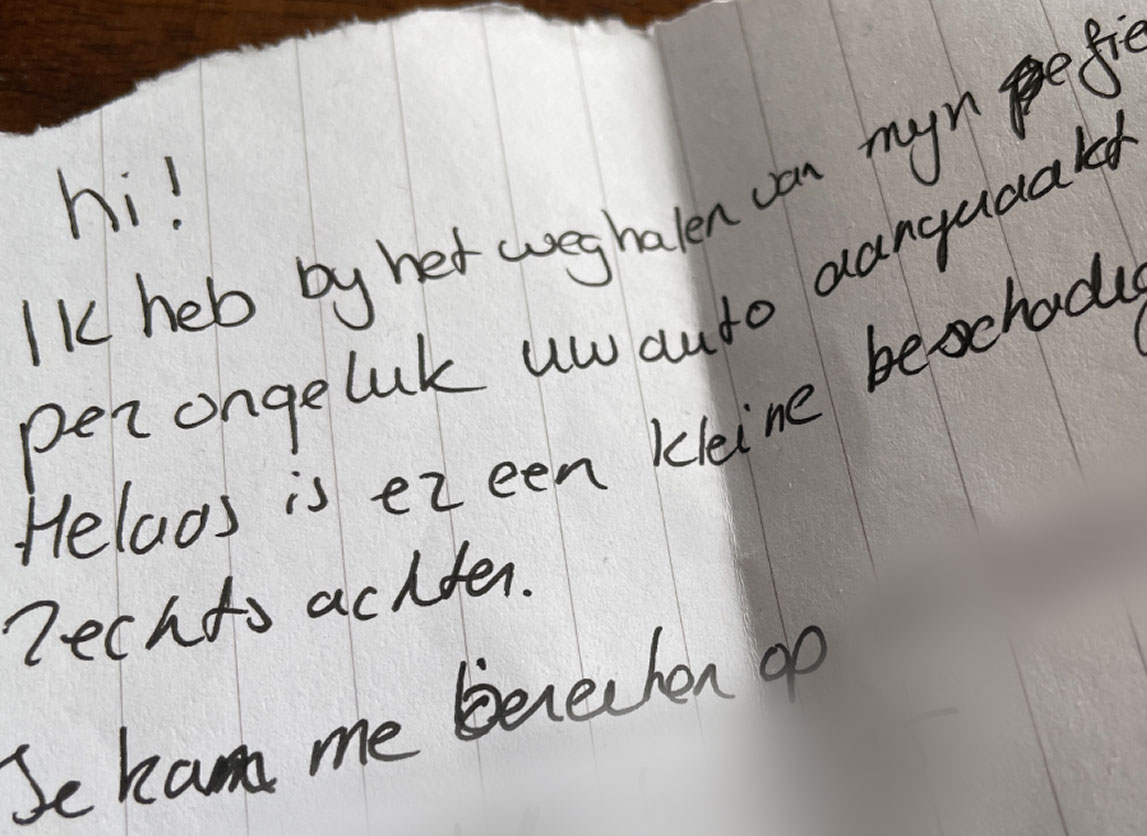 hi!
Ik heb by het weghalen van myn fie
per ongeluk uw auto aangeraakt
Helaas is er een kleine beschadig
rechts achter.
Je kan me bereiken op